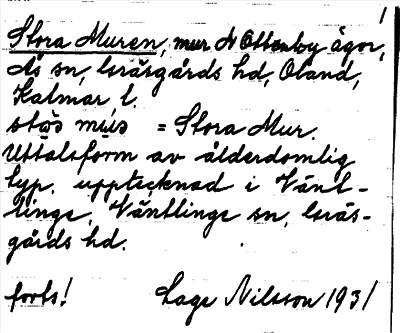 1
Stora Muren, mur N Ottenby ägor,
Ås sn, Gräsgårds hd, Öland,
Kalmar l.
= Stora Mur.
Uttalsform av ålderdomlig
typ, upptecknad i Vänt-
linge, Väntlinge sn, Gräs-
gårds hd.
forts! Lage Nilsson 1931